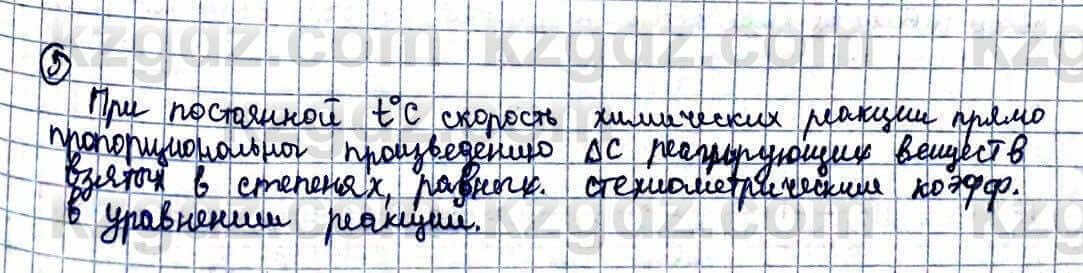 kzgdz.com kzgdz.com kzg
5
При постоянной t°C скорость химических реакции прямо
пропорциональны произведению ΔC реагирующих веществ
взятых в степенях, равных. стехиометрическим коэфф.
в уравнении реакции.
kzgdz.com kzgdz.com kzg